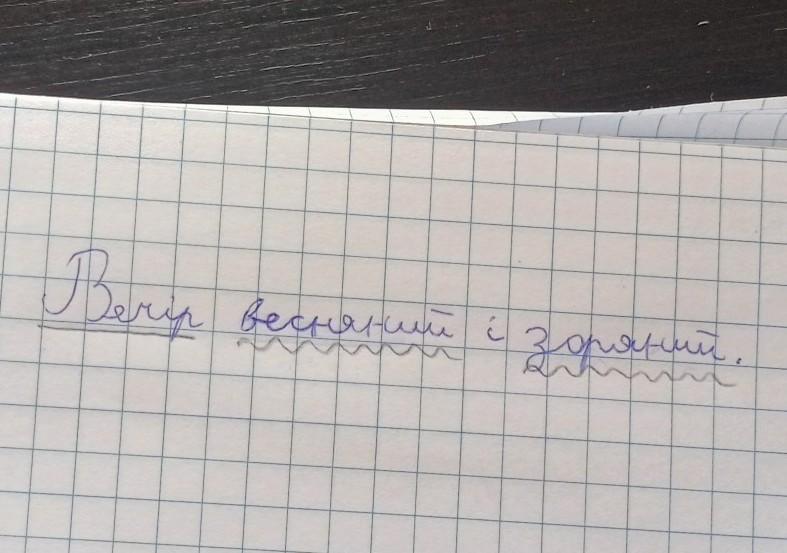 Вечір весняний і зоряний.